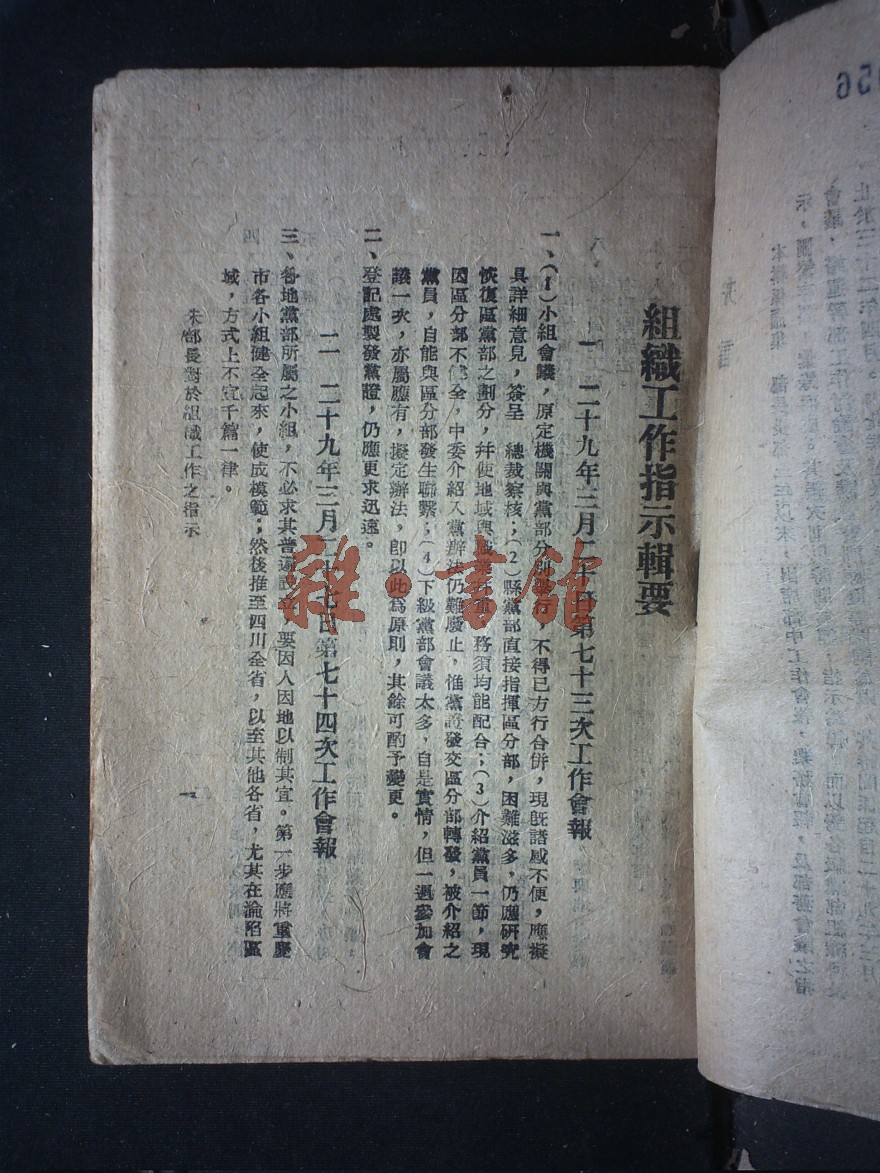 組織工作指示輯要
一 二十九年三月二十日第七十三次工作會報
一、(1)小組會議，原定機關與黨部分別舉行，不得已方行合併，現既諸感不便，應擬
具詳細意見，簽呈 總裁察核；(2)縣黨部直接指揮區分部，困難滋多，仍應研究
恢復區黨部之劃分，并使地域與職業并重，務須均能配合；(3)介紹黨員一節，現
因區分部不健全，中委介紹入黨辦法仍難廢止，惟黨證發交區分部轉發，被介紹之
黨員，自能與區分部發生聯繫；(4)下級黨部會議太多，自是實情，但一週參加會
議一次，亦屬應有，擬定辦法，卽以此爲原則，其餘可酌予變更。
二、登記處製發黨證，仍應更求迅速。
二 二十九年三月二十七日第七十四次工作會報
三、各地黨部所屬之小組，不必求其普遍設立，要因人因地以制其宜。第一步應將重慶
市各小組健全起來，使成模範；然後推至四川全省，以至其他各省，尤其在淪陷區
域，方式上不宜千篇一律。
朱部長對於組織工作之指示
一
雜·書館